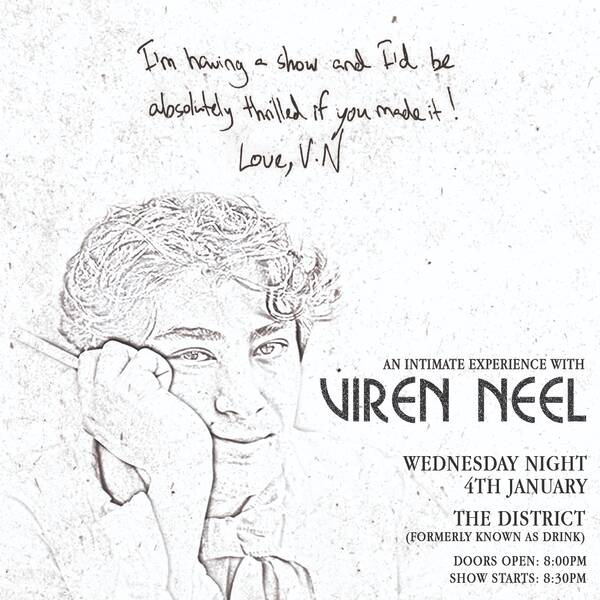 I'm having a show and I'd be
absolutely thrilled if you made it!
Love, V.N
AN INTIMATE EXPERIENCE WITH
VIREN NEEL
WEDNESDAY NIGHT
4TH JANUARY
THE DISTRICT
(FORMERLY KNOWN AS DRINK)
DOORS OPEN: 8:00PM
SHOW STARTS: 8:30PM